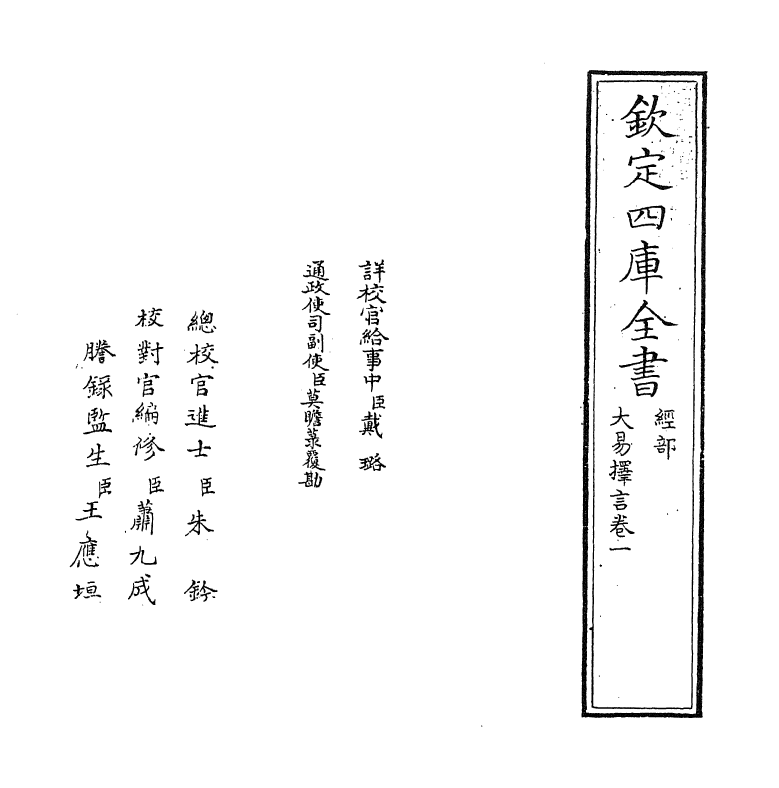 欽定四庫全書
經部
大易擇言卷一
詳校官給事中臣戴璐
通政使司副使臣莫瞻菉覆勘
總校官進士臣朱鈐
校對官編修臣蕭九成
謄錄監生臣王應垣